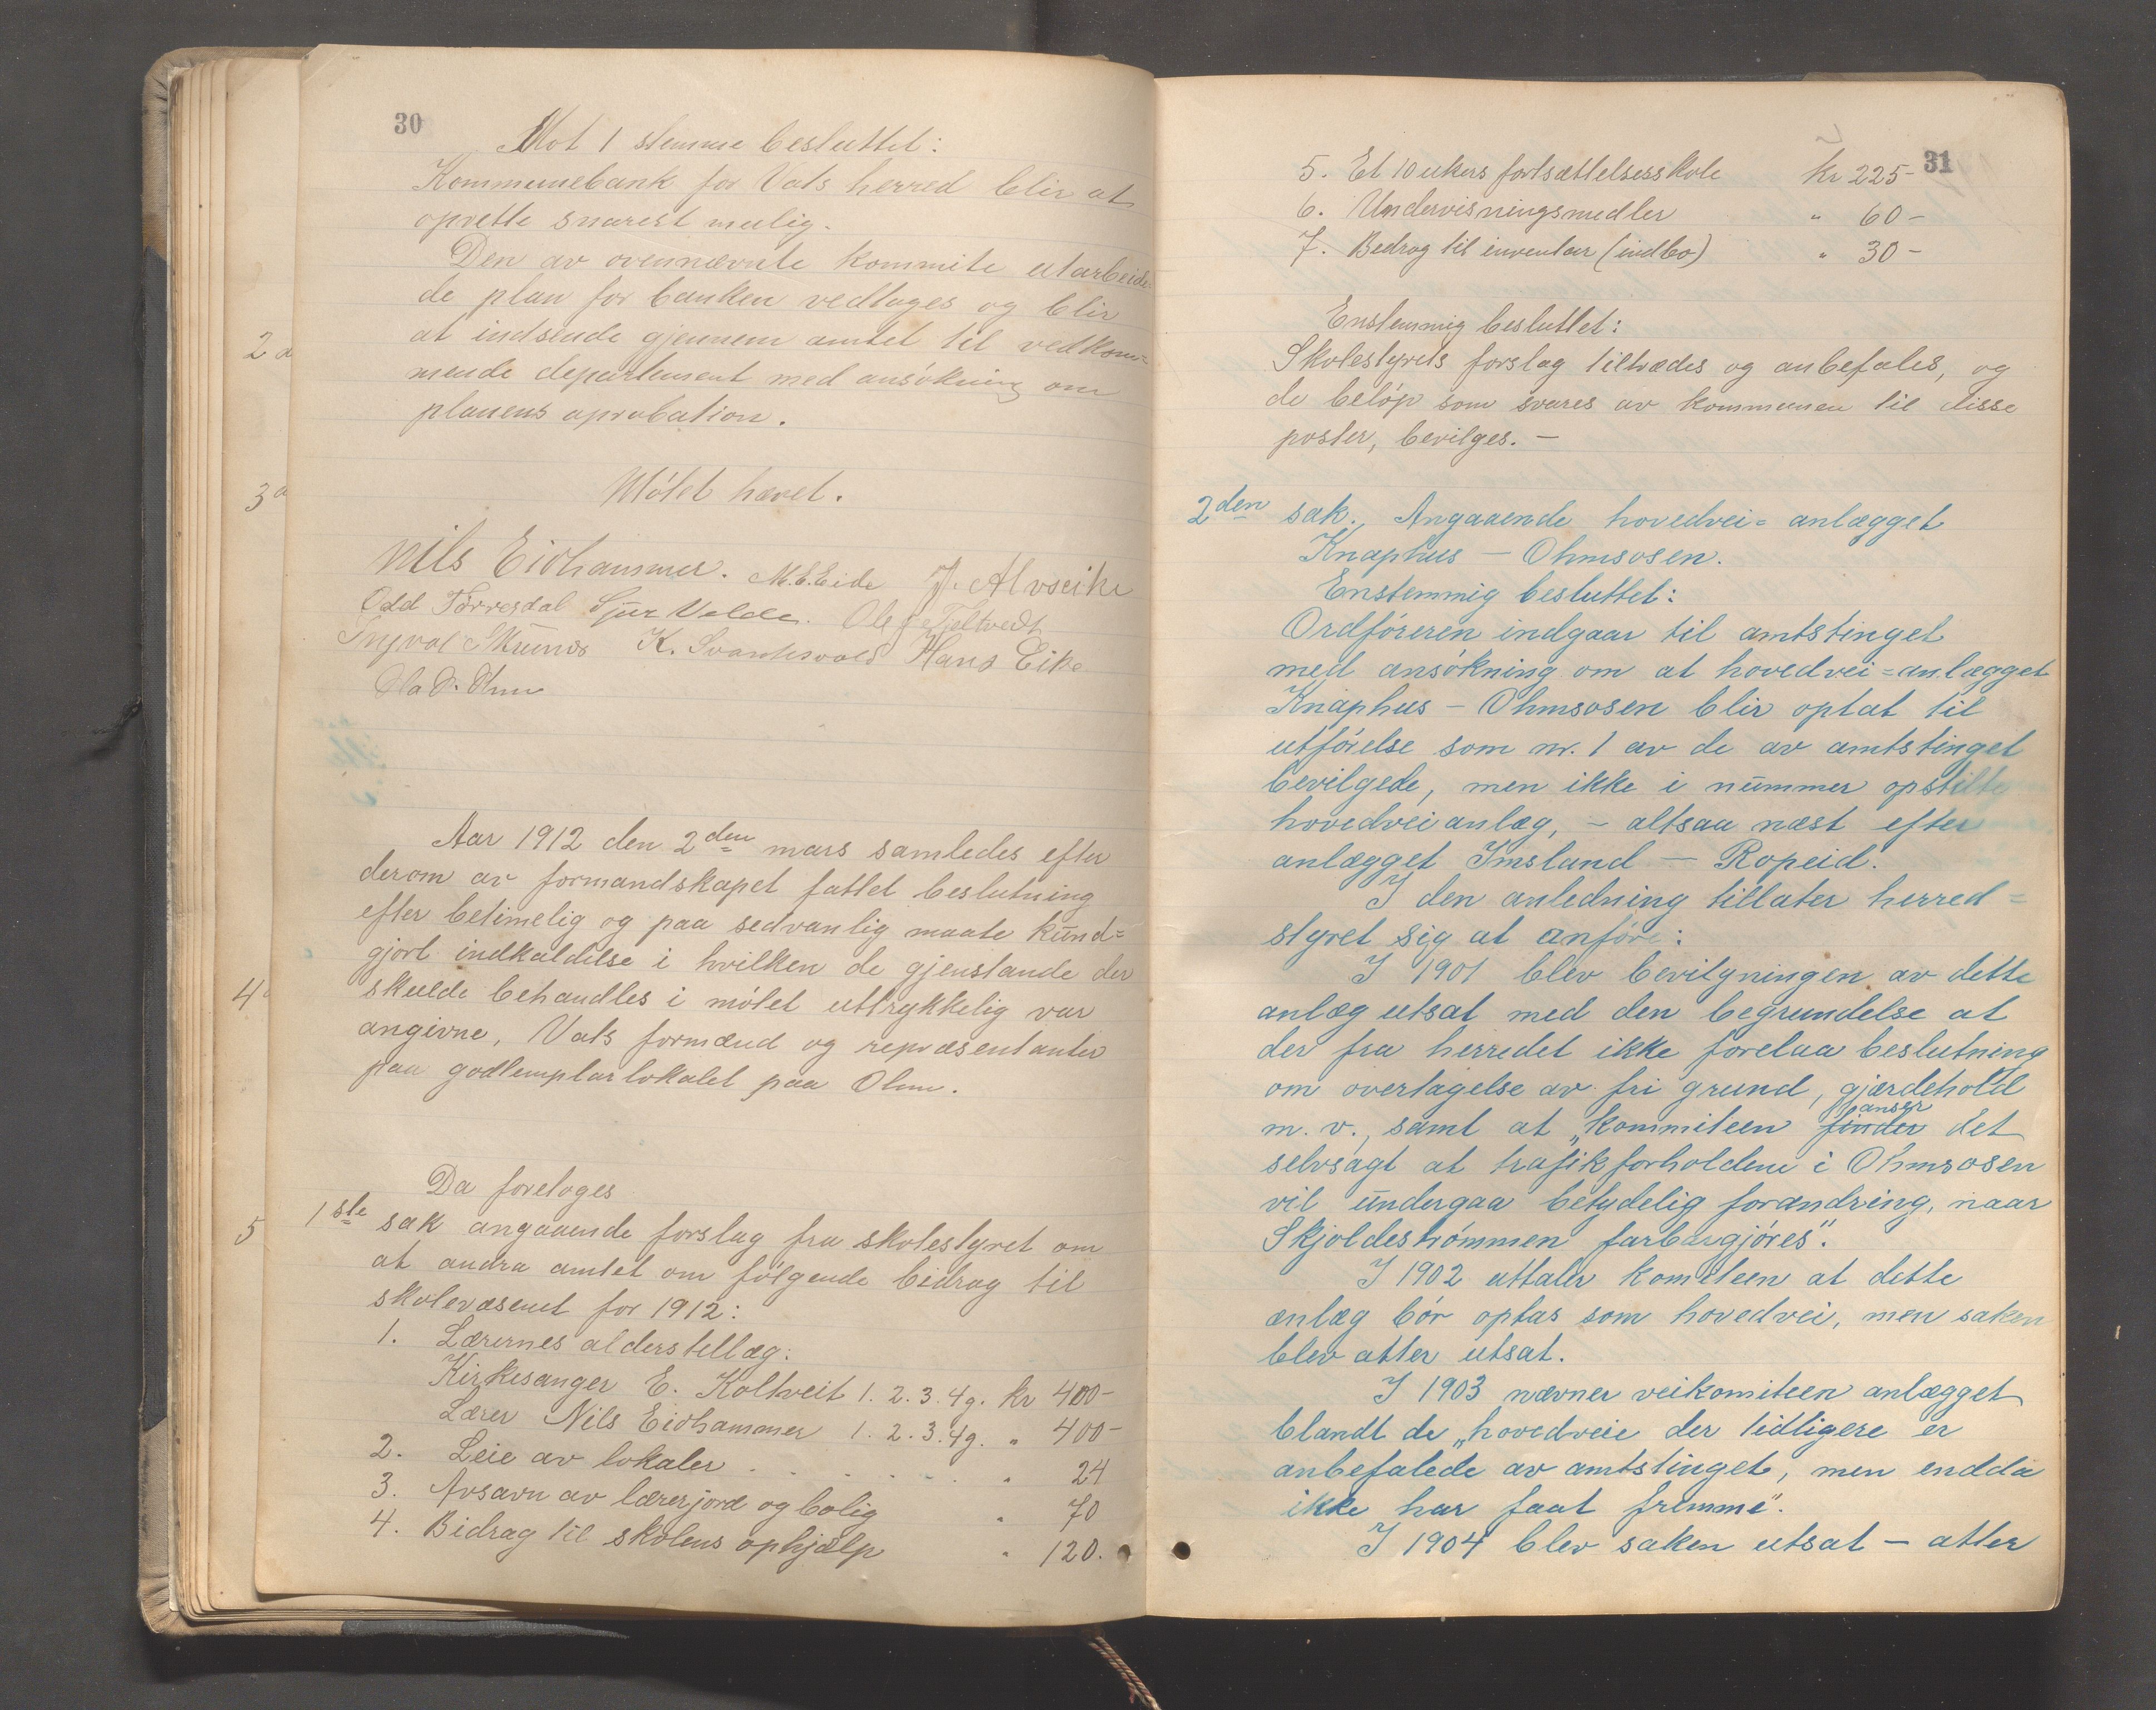 30
Mot 1 stemme besluttet:
Kommunebank for Vats herred blir at
oprette snarest mulig.
Den av ovennævnte kommite utarbeide-
de plan for banken vedtages og blir
at indsende gjennem amtet til vedkom=
mende departement med ansökning om
planens aprobation.
Mötet hævet.
Nils Eidhammer. M.E.Eide J. Alvseike
Odd Törresdal Sjur Velde. Ole
Ingval K. Svartevold Hans Eike
Ola
Aar 1912 den 2den mars samledes efter
derom av formandskapet fattet beslutning
efter betimelig og paa sedvanlig maate kund=
gjort indkaldelse i hvilken de gjenstande der
skulde behandles i mötet uttrykkelig var
angivne, Vats formænd og repræsentanter
paa godtemplarlokalet paa Ohm.
Da foretoges
1ste sak angaaende forslag fra skolestyret om
at andra amtet om fölgende bidrag til
skolevæsenet for 1912:
1. Lærernes alderstillæg:
Kirkesanger E. Koltveit 1. 2. 3. 4g. kr 400-
Lærer Nils Eidhammer 1. 2. 3. 4g. " 400-
2. Leie av lokaler . . . . . . " 24
3. Avsavn av lærerjord og bolig " 70
4. Bidrag til skolens ophjælp " 120.
2
3
4
5
31
5. Et 10 ukers fortsættelsesskole kr 225-
6. Undervisningsmidler " 60-
7. Bedrag til inventar (indbo) " 30-
Enstemmig besluttet:
Skolestyrets forslag tiltrædes og anbefales, og
de belöp som svares av kommunen til disse
poster, bevilges. -
2den sak. Angaaende hovedvei= anlægget
Knaphus - Ohmsosen.
Enstemmig besluttet:
Ordföreren indgaar til amtstinget
med ansökning om at hovedvei=anlægget
Knaphus - Ohmsosen blir optat til
utförelse som nr. 1 av de av amtstinget
bevilgede, men ikke i nummer opstilte
hovedveianlæg, - altsaa næst efter
anlægget Imsland - Ropeid.
I den anledning tillater herred=
styret sig at anföre:
I 1901 blev bevilgningen av dette
anlæg utsat med den begrundelse at
der fra herredet ikke forelaa beslutning
om overtagelse av fri grund, gjærdehold
m. v., samt at "kommiteen finder anser det
selvsagt at trafikforholdene i Ohmsosen
vil undergaa betydelig forandring, naar
Skjoldeströmmen farbargjöres".
I 1902 uttaler komiteen at dette
anlæg bör optas som hovedvei, men saken
blev atter utsat.
I 1903 nævner veikomiteen anlægget
blandt de "hovedveie der tidligere er
anbefalede av amtstinget, men endda
ikke har faat fremme".
I 1904 blev saken utsat - atter